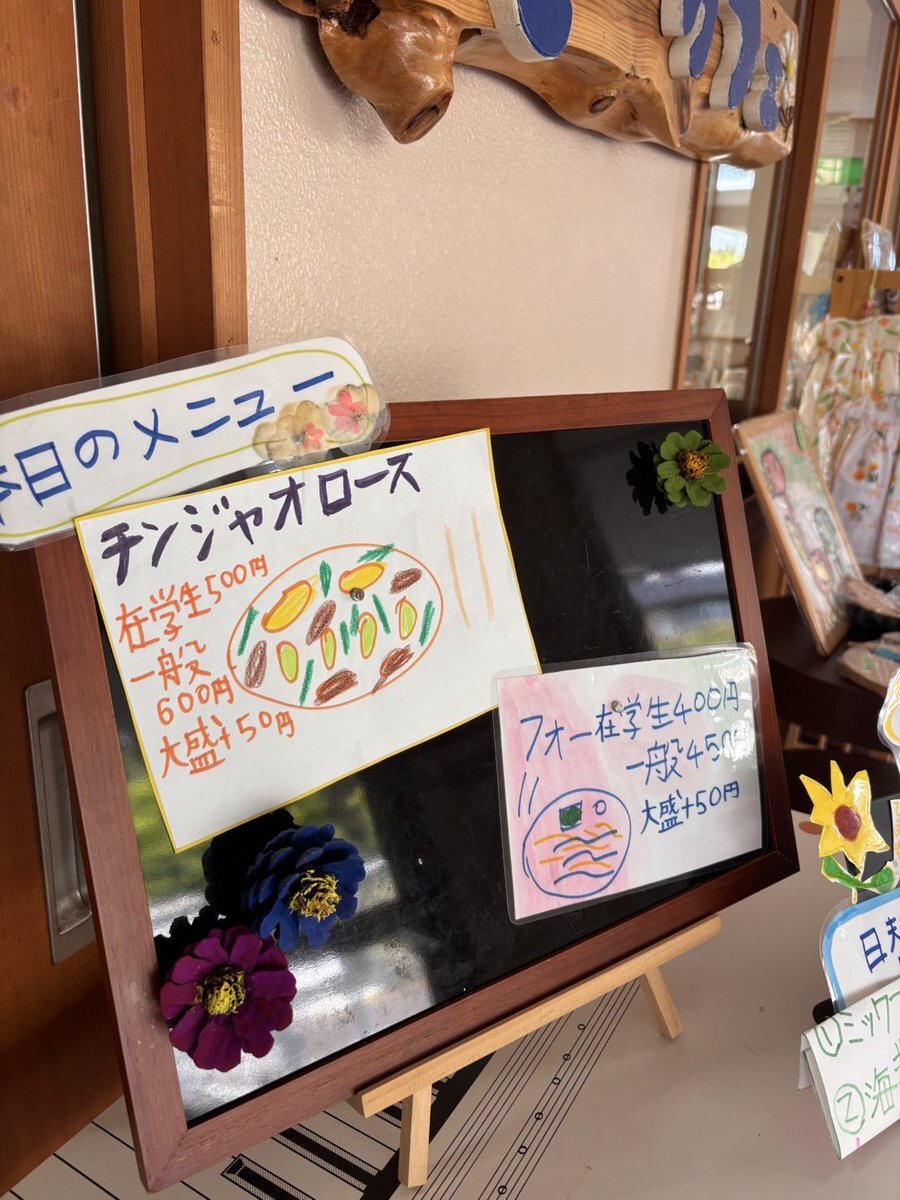 本日のメニュー
チンジャオロース
在学生500円
一般
600円
大盛+50円
フォー在学生400円
一般450円
大盛+50円
日替
①ミック
②海